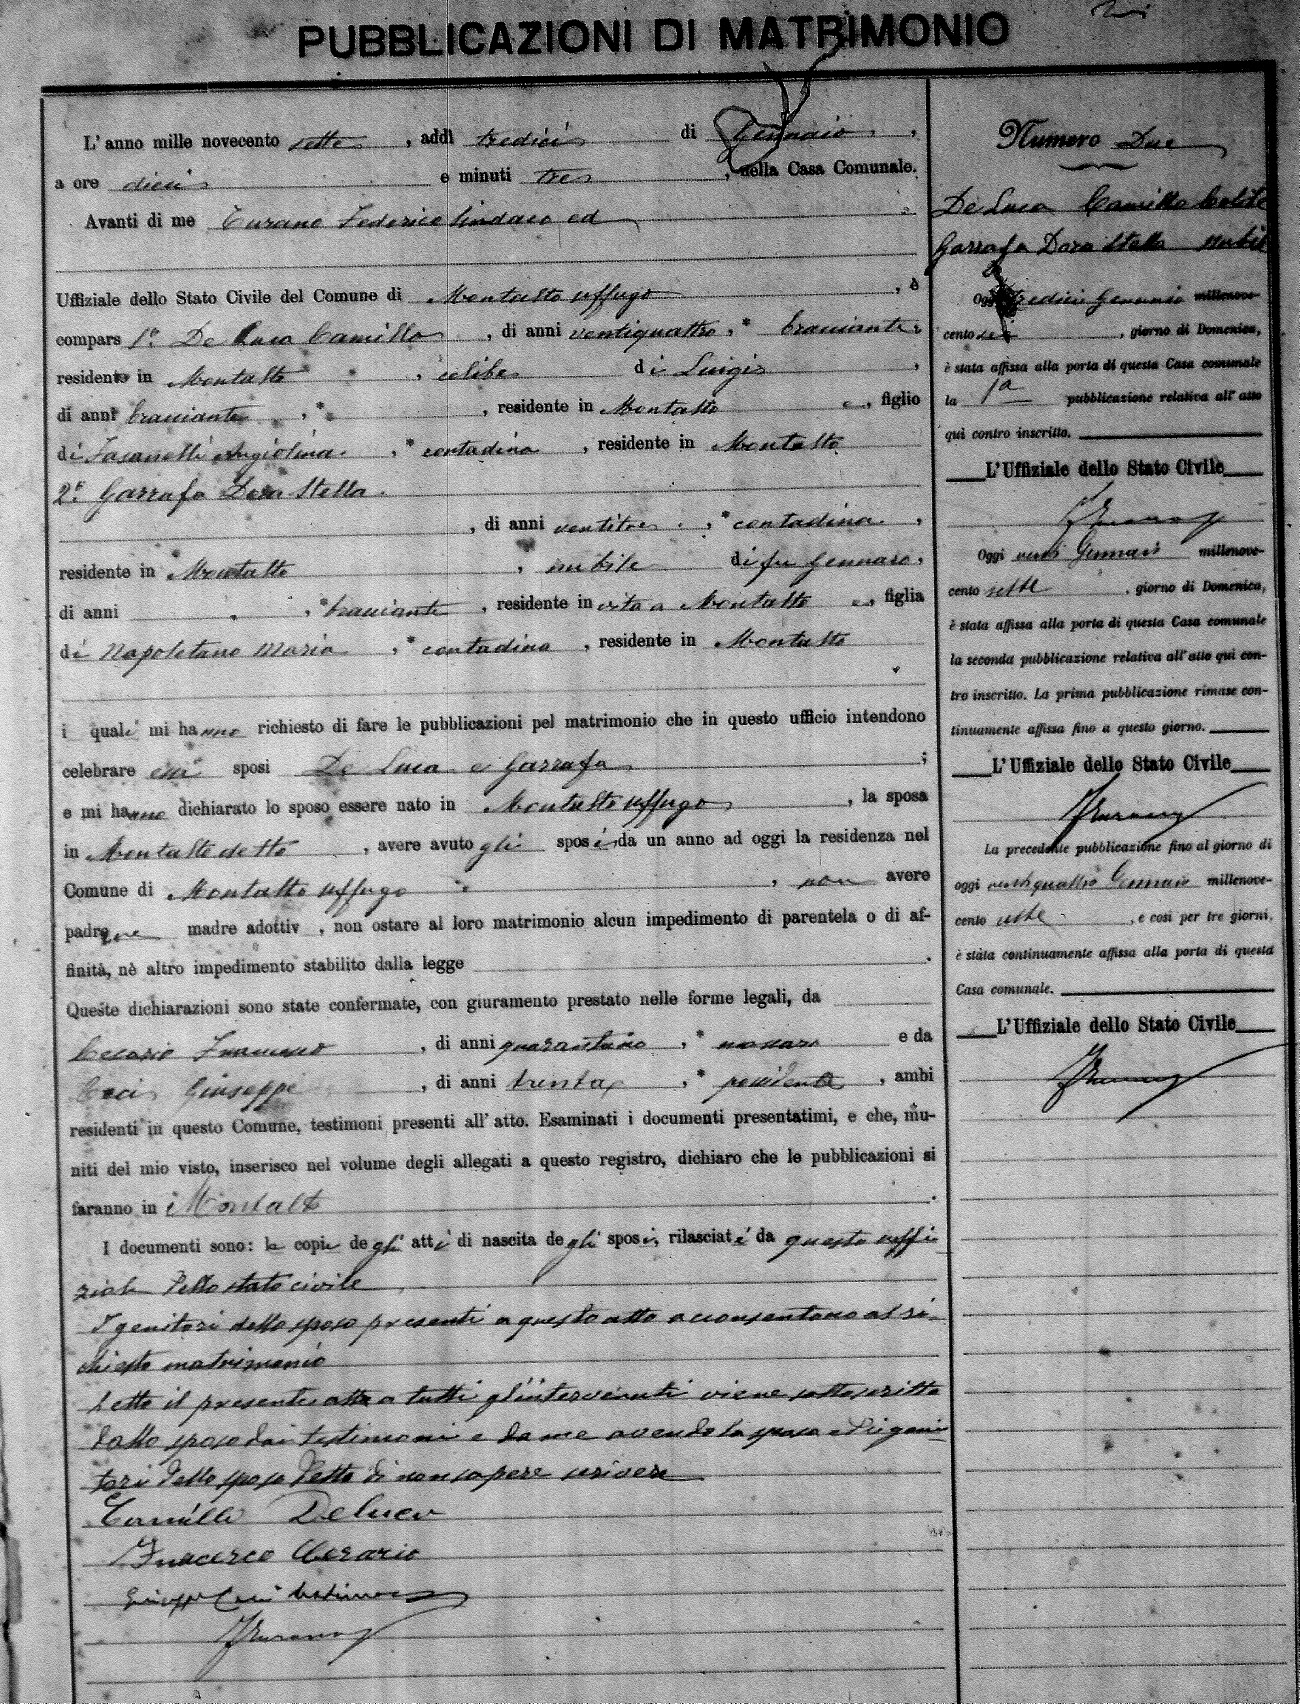 PUBBLICAZIONI DI MATRIMONIO
L'anno mille novecento sette, addì tredici di Gennaio,
a ore dieci e minuti tre, nella Casa Comunale.
Avanti di me Turano Federico Sindaco ed
Uffiziale dello Stato Civile del Comune di Montalto Uffugo, è
compars 1° De Luca Camillo, di anni ventiquattro, bracciante,
residente in Montalto, celibe di Luigi,
di anni bracciante, residente in Montalto e, figlio
di Fasanelli Angiolina, contadina, residente in Montalto
2° Garrafa Dora Stella
, di anni ventitre, contadina,
residente in Montalto, nubile di fu Gennaro,
di anni, bracciante, residente in vita a Montalto e, figlia
di Napoletano Maria, contadina, residente in Montalto
i quali mi hanno richiesto di fare le pubblicazioni pel matrimonio che in questo ufficio intendono
celebrare essi sposi De Luca e Garrafa;
e mi hanno dichiarato lo sposo essere nato in Montalto Uffugo, la sposa
in Montalto detto, avere avuto gli sposi da un anno ad oggi la residenza nel
Comune di Montalto Uffugo, non avere
padre ne madre adottiv, non ostare al loro matrimonio alcun impedimento di parentela o di af-
finità, nè altro impedimento stabilito dalla legge.
Queste dichiarazioni sono state confermate, con giuramento prestato nelle forme legali, da
Cesario Francesco, di anni, e da
Ceci Giuseppe, di anni trenta, possidente, ambi
residenti in questo Comune, testimoni presenti all'atto. Esaminati i documenti presentatimi, e che, mu-
niti del mio visto, inserisco nel volume degli allegati a questo registro, dichiaro che le pubblicazioni si
faranno in Montalto.
I documenti sono: le copie degli atti di nascita degli sposi, rilasciate da questo uffi
ziale dello stato civile
I genitori dello sposo presenti a questo atto acconsentono al ri-
chiesto matrimonio
Letto il presente atto a tutti gl'intervenuti viene sottoscritto
dallo sposo dai testimoni e da me avendo la sposa e i geni-
tori dello sposo detto di non sapere scrivere
Camillo De Luca
Francesco Cesario
Giuseppe Ceci testimone
FTurano
Numero Due
De Luca Camillo celibe
Garrafa Dora Stella nubile
Oggi tredici Gennaio millenove-
cento, giorno di Domenica,
è stata affissa alla porta di questa Casa comunale
la 1a pubblicazione relativa all'atto
qui contro inscritto.
L'Uffiziale dello Stato Civile
FTurano
Oggi venti Gennaio millenove-
cento sette, giorno di Domenica,
è stata affissa alla porta di questa Casa comunale
la seconda pubblicazione relativa all'atto qui con-
tro inscritto. La prima pubblicazione rimase con-
tinuamente affissa fino a questo giorno.
L'Uffiziale dello Stato Civile
FTurano
La precedente pubblicazione fino al giorno di
oggi ventiquattro Gennaio millenove-
cento sette, e così per tre giorni,
è stata continuamente affissa alla porta di questa
Casa comunale.
L'Uffiziale dello Stato Civile
FTurano